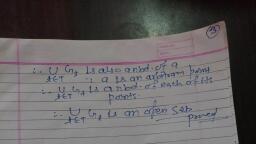 3
∴ ∪ Gλ is also a nbd. of a
λ∈T ∵ a is an arbitrary point
∴ ∪ Gλ is a nbd. of each of its
λ∈T points.
∴ ∪ Gλ is an open set
λ∈T proved